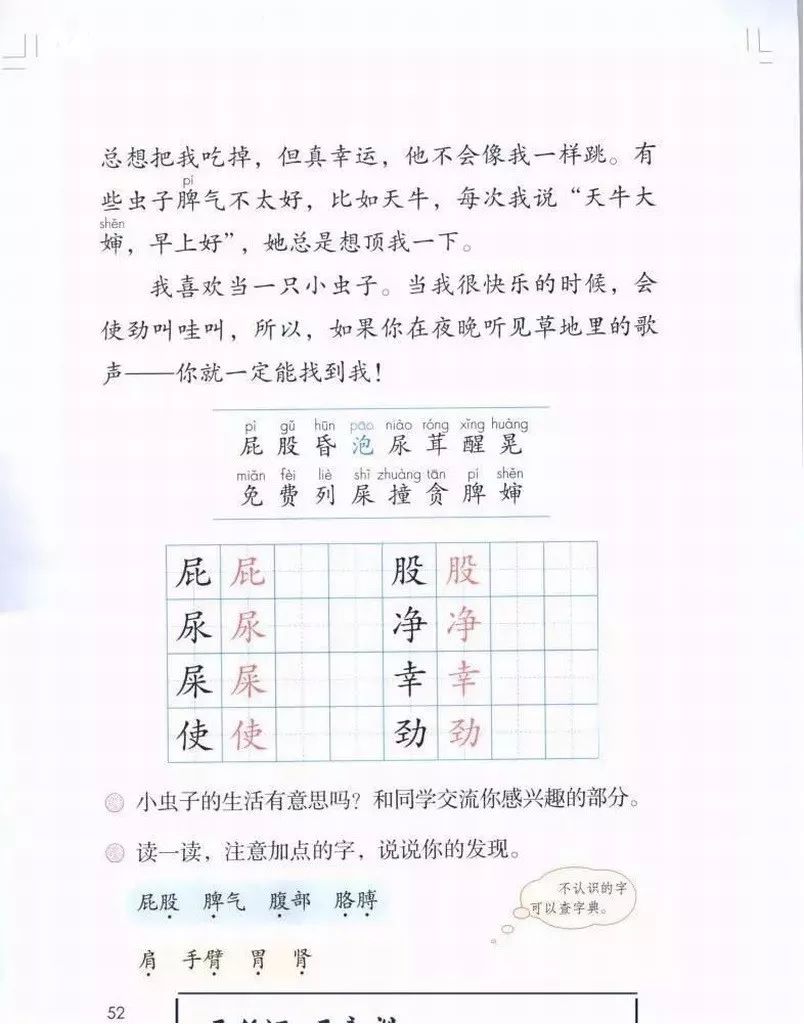 总想把我吃掉，但真幸运，他不会像我一样跳。有
pí
些虫子脾气不太好，比如天牛，每次我说“天牛大
shěn
婶，早上好”，她总是想顶我一下。
我喜欢当一只小虫子。当我很快乐的时候，会
使劲叫哇叫，所以，如果你在夜晚听见草地里的歌
声——你就一定能找到我！
pì gǔ hūn pāo niào róng xǐng huàng
屁 股 昏 泡 尿 茸 醒 晃
miǎn fèi liè shǐ zhuàng tān pí shěn
免 费 列 屎 撞 贪 脾 婶
屁 屁 股 股
尿 尿 净 净
屎 屎 幸 幸
使 使 劲 劲
小虫子的生活有意思吗？和同学交流你感兴趣的部分。
读一读，注意加点的字，说说你的发现。
屁股 脾气 腹部 胳膊
不认识的字
可以查字典。
肩 手臂 胃 肾
52